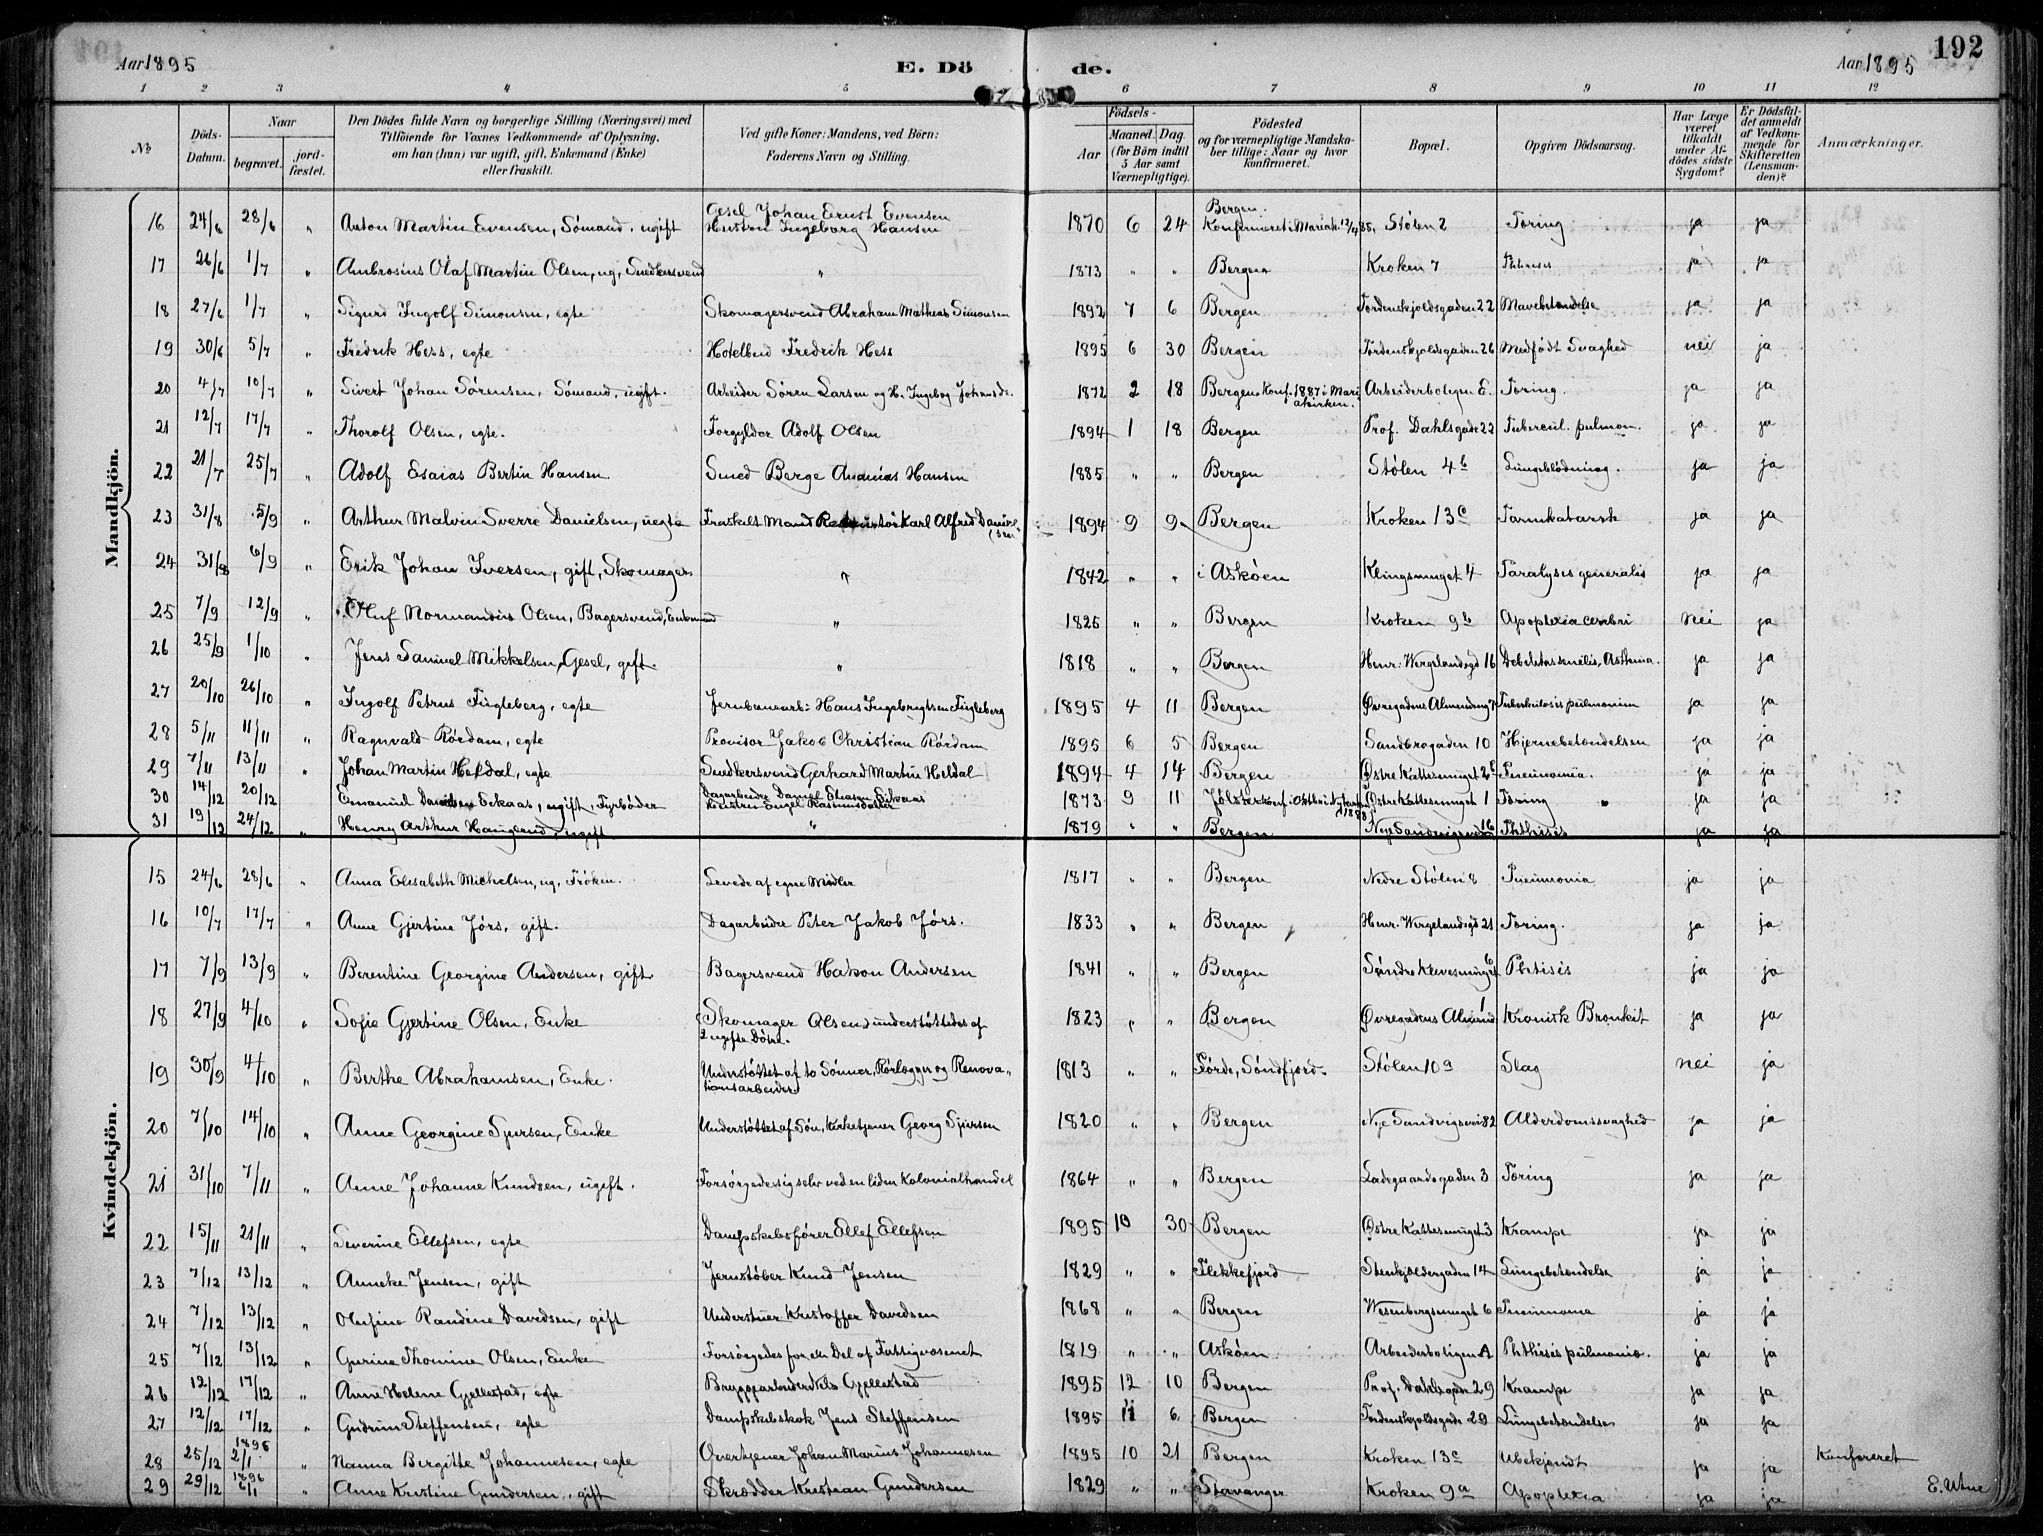 Aar 1895
E. Dö
de.
Aar 1895
192
1 2 3 4 5 6 7 8 9 10 11 12
No
Döds-Datum.
Naar
begravet.
jord-fæstet.
Den Dödes fulde Navn og borgerlige Stilling (Næringsvei) med
Tilföiende for Voxnes Vedkommende af Oplysning,
om han (hun) var ugift, gift, Enkemand (Enke)
eller fraskilt.
Ved gifte Koner: Mandens, ved Börn:
Faderens Navn og Stilling.
Födsels-
Aar
Maaned. Dag.
(for Börn indtil
5 Aar samt
Værnepligtige).
Födested
og for værnepligtige Mandska-
ber tillige: Naar og hvor
konfirmeret.
Bopæl.
Opgiven Dödsaarsag.
Har Læge
været
tilkaldt
under Af-
dödes sidste
Sygdom?
Er Dödsfal-
det anmeldt
af Vedkom-
mende for
Skifteretten
(Lensman-
den)?
Anmærkninger.
Mandkjön.
16 24/6 28/6 " Anton Martin Evensen, Sømand, ugift Gesel Johan Ernst Evensen Hustru Ingeborg Hansen 1870 6 24 Bergen. Konfirmeret i Mariak. 12/4 85, Stølen 2 Tæring ja ja
17 26/6 1/7 " Ambrosius Olaf Martin Olsen, ug, Snedkersvend " 1873 " " Bergen Kroken 7 Phthisis ja ja
18 27/6 1/7 " Sigurd Ingolf Simonsen, egte Skomagersvend Abraham Mathias Simonsen 1892 7 6 Bergen Tordenskjoldsgaden 22 Mavebetændelse ja ja
19 30/6 5/7 " Fredrik Hess, egte Hotelbud Fredrik Hess 1895 6 30 Bergen Tordenskjoldsgaden 26 Medfødt Svaghed nei ja
20 4/7 10/7 " Sivert Johan Sørensen, Sømand, ugift. Arbeider Søren Larsen og H. Ingebog Johansdr. 1872 2 18 Bergen Konf. 1887 i Mariakirken. Arbeiderboligen E. Tæring. ja ja
21 12/7 17/7 " Thorolf Olsen, egte. Forgylder Adolf Olsen 1894 1 18 Bergen Prof. Dahlsgade 22 Tubercul. pulmon. ja ja
22 21/7 25/7 " Adolf Esaias Bertin Hansen Smed Berge Ananias Hansen 1885 " " Bergen Stølen 4b Lungeblødning. ja ja
23 31/8 5/9 " Arthur Malvin Sverre Danielsen, uegte Fraskilt Mand Karl Alfred Danielsen 1894 9 9 Bergen Kroken 13c Tarmkatarrh ja ja
24 31/8 6/9 " Erik Johan Iversen, gift, Skomager " 1842 " " i Askøen Klingsmuget 4 Paralysis generalis ja ja
25 7/9 12/9 " Oluf Normandius Olsen, Bagersvend, Enkemand " 1825 " " Bergen Kroken 9b Apoplexia cerebri nei ja
26 25/9 1/10 " Jens Samuel Mikkelsen, Gesel, gift " 1818 " " Bergen Henr. Wergelandsgd 16 Debilitas senilis, Asthma. ja ja
27 20/10 26/10 " Ingolf Petrus Fugleberg, egte Jernbanearb: Hans Ingebrigtsen Fugleberg 1895 4 11 Bergen Øvregadens Almending 7 Tuberkulosis pulmonum ja ja
28 5/11 11/11 " Ragnvald Rørdam, egte Provisor Jakob Christian Rørdam 1895 6 5 Bergen Sandbrogaden 10 Hjernebetændelsen ja ja
29 7/11 13/11 " Johan Martin Heldal, egte Snedkersvend Gerhard Martin Heldal 1894 4 14 Bergen Østre Kattesmuget 2b Pneumonia. ja ja
30 14/12 20/12 " Emanuel Eckaas, ugift, Fyrbøder Dagarbeider Daniel Eliasen Eikaas Hustru Engel Rasmusdatter 1873 9 11 Jølster konf. i Oktbr i Nykirken 1888 Østre Kattesmuget 1 Tæring ja ja
31 19/12 24/12 " Henry Arthur Haugerud, ugift " 1879 " " Bergen Nye Sandvigsvei 16 Phthisis ja ja
Kvindekjön.
15 24/6 28/6 " Anna Elisabeth Michelsen, ug, Frøken. Levede af egne Midler 1817 " " Bergen Nedre Stølen 8 Pneumonia ja ja
16 10/7 17/7 " Anne Gjertine Jørs, gift. Dagarbeider Peter Jakob Jørs. 1833 " " Bergen Henr. Wergelandsgd 21 Tæring. ja ja
17 7/9 13/9 " Berentine Georgine Andersen, gift Bagersvend Hakon Andersen 1841 " " Bergen Søndre Klevesmuget 6 Phtisis ja ja
18 27/9 4/10 " Sofie Gjertine Olsen, Enke (Skomager Olsen) understøttedes af 2 ugifte Døtre. 1823 " " Bergen Øvregadens Almind 1 Kronisk Bronkit ja ja
19 30/9 4/10 " Berthe Abrahamsen, Enke. Understøttet af to Sønner, Rørlægger og Renovationsarbeider 1813 " " Førde, Søndfjord. Stølen 10a Slag nei ja
20 7/10 14/10 " Anne Georgine Sjursen, Enke Understøttet af Søn, Kirketjener Georg Sjursen 1820 " " Bergen Nye Sandvigsvei 82 Alderdomssvaghed ja ja
21 31/10 7/11 " Anne Johanne Knudsen, ugift. Forsørgede sig selv ved en liden Kolonialhandel 1864 " " Bergen Ladegaardsgaden 3 Tæring ja ja
22 15/11 21/11 " Severine Ellefsen, egte Dampskibsfører Ellef Ellefsen 1895 10 30 Bergen Østre Kattesmuget 3 Krampe ja ja
23 7/12 13/12 " Anneke Jensen, gift Jernstøber Knud Jensen 1829 " " Flekkefjord Stenkjeldergaden 14 Lungebetændelse ja ja
24 7/12 13/12 " Olufine Randine Davidsen, gift Understuer Kristoffer Davidsen 1868 " " Bergen Wesenbergsmuget 6 Pneumonia ja ja
25 7/12 13/12 " Gurine Thomine Olsen, Enke Forsørgedes for en Del af Fattigvæsenet 1819 " " Askøen Arbeiderboligen A Phthisis pulmonis. ja ja
26 12/12 17/12 " Anne Helene Gjellestad, egte Bryggearbeider Nils Gjellestad 1895 12 10 Bergen Prof. Dahlsgade 29 Krampe ja ja
27 12/12 17/12 " Gudrun Steffensen, egte Dampskibskok Jens Steffensen 1895 11 6 Bergen Tordenskjoldsgade 29 Lungebetændelse ja ja
28 25/12 1896 2/1 " Nanna Birgitte Johannesen, egte Overtjener Johan Marius Johannesen 1895 10 21 Bergen Kroken 13c Ubekjendt ja ja Konfereret
29 29/12 1896 6/1 " Anne Kristine Gundersen, gift Skrædder Kristian Gundersen 1829 " " Stavanger Kroken 9a Apoplexia ja ja E. Utne